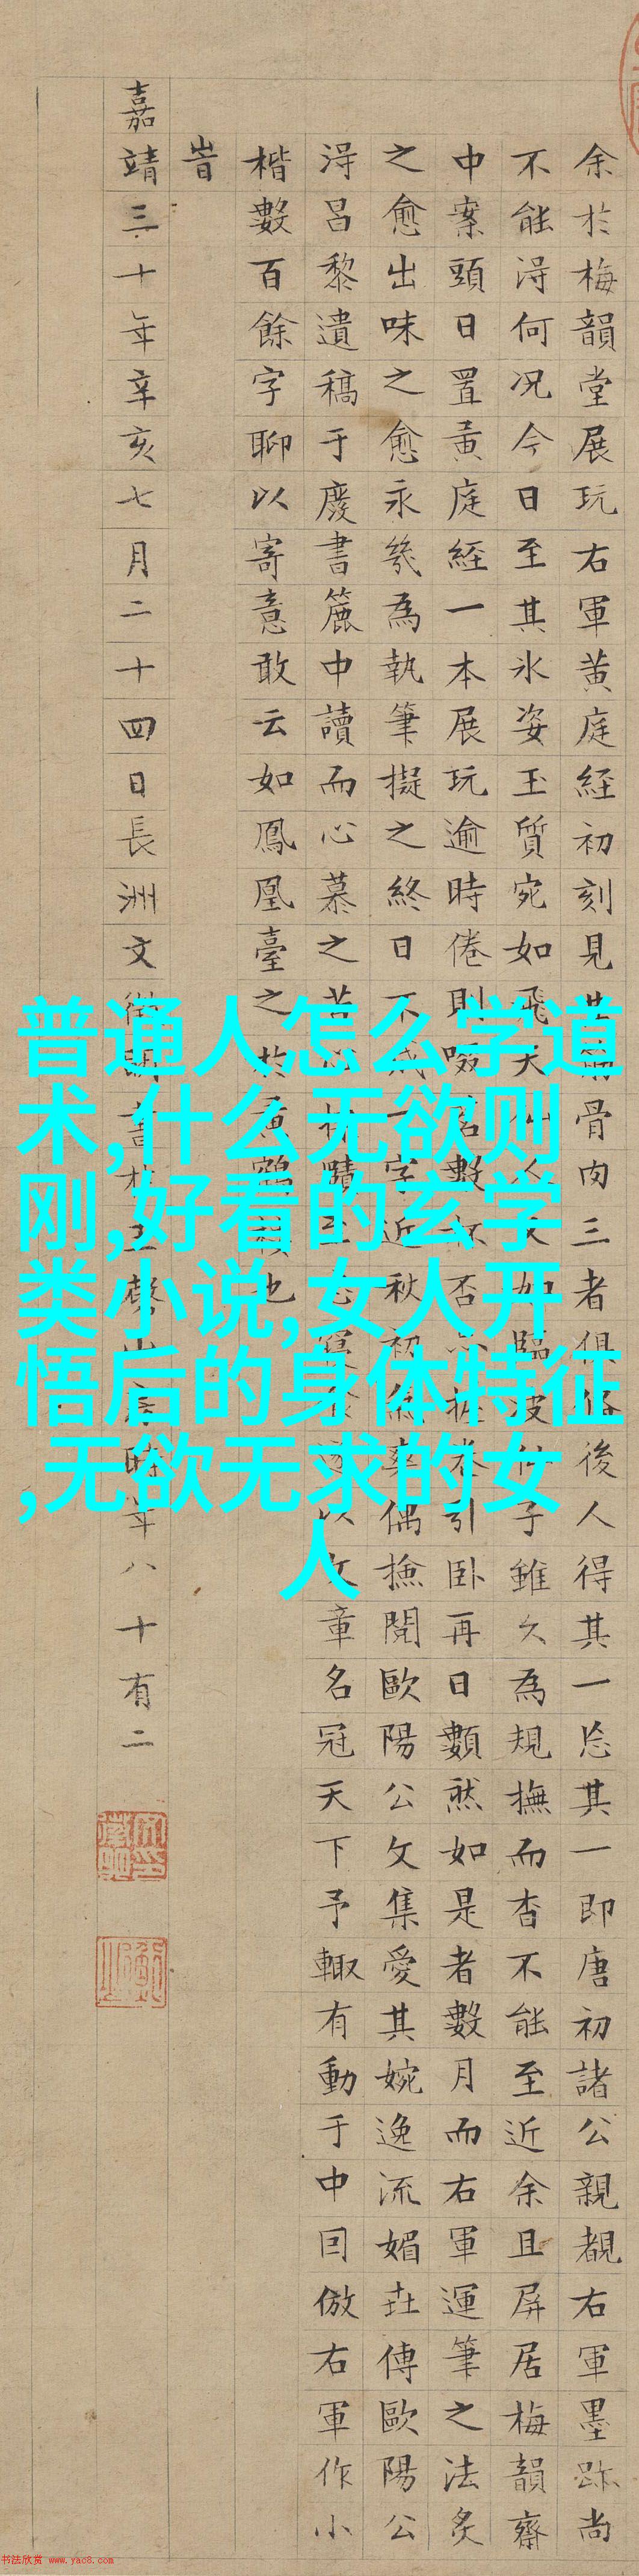 余於梅韻堂展玩右軍黄庭経初刻見其骨肉三者俱後人得其一忘其一即唐初諸公親覩右軍墨跡尚
不能得何况今日至其氷姿玉質宛如飛天仙人又如臨波仙子雖久為規撫而杳不能至近余且屏居梅韻齋
中案頭日置黄庭経一本展玩逾時倦則啜茗數杯否亦握卷引卧再日數然如是者數月而右軍運筆之法炙
之愈出味之愈永幾為執筆擬之終日不成一字近秋初爽偶撿閱歐陽公文集愛其婉逸流媚傳歐陽公
得昌黎遺稿于廢書簏中讀而心慕之苦心探賾至忘寝食以文章名冠天下予輙有動于中囙倣右軍作小
楷數百餘字聊以寄意敢云如鳳凰臺之於黄鶴樓也
旹
嘉靖三十年辛亥七月二十四日長洲文徵明書於玉磬山房時年八十有二
普通人怎么学道
术,什么无欲则
刚,好看的玄学
类小说,女人开
悟后的身体特征
,无欲无求的女
人
书法欣赏 www.yac8.com